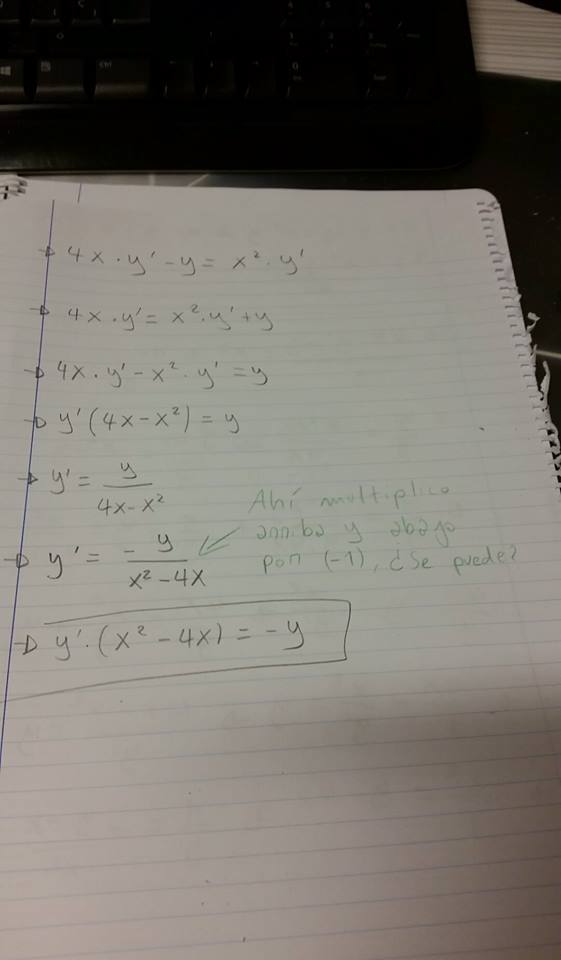 4x · y' - y = x² · y'
4x · y' = x² · y' + y
4x · y' - x² · y' = y
y' (4x - x²) = y
y' = y / (4x - x²)
y' = - y / (x² - 4x)
Ahí multiplico
arriba y abajo
por (-1), ¿Se puede?
y' · (x² - 4x) = -y